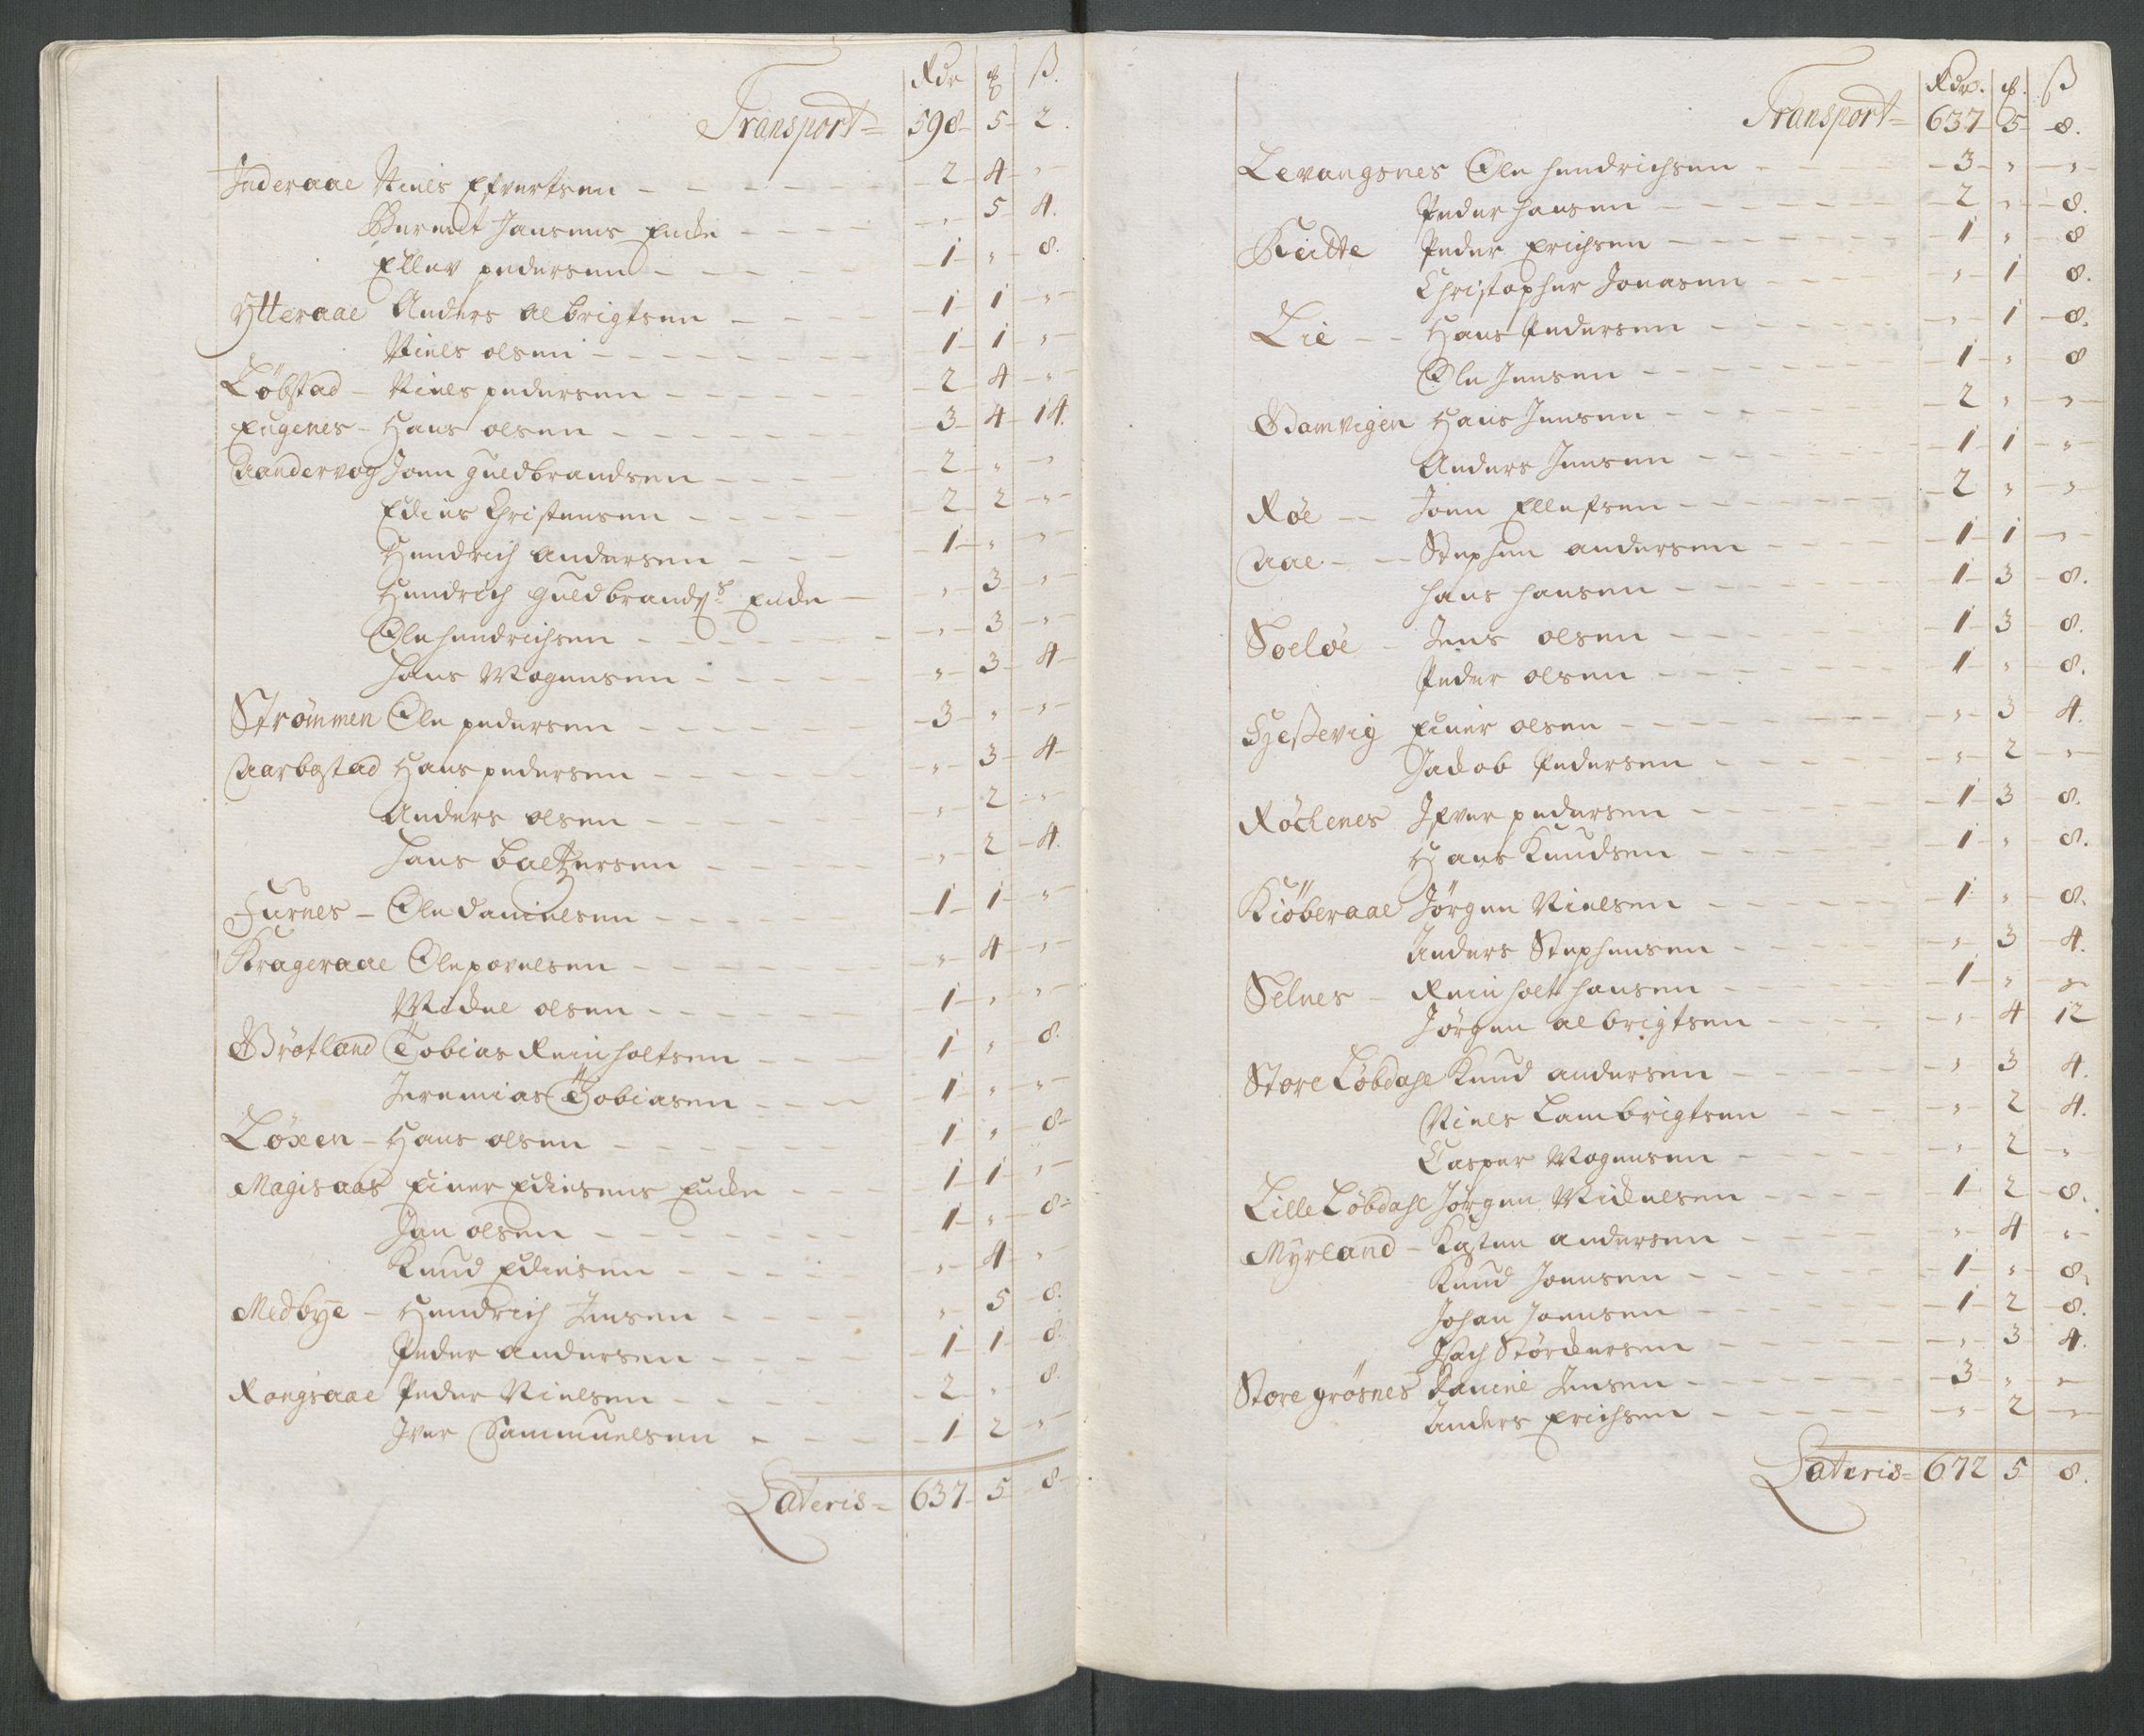 Rdr ꝑ ß.
Transport = 598 - 5 - 2.
Inderaae Niels Efvertsen - 2 - 4 - "
Berendt Jansens Encke - " - 5 - 4.
Ellev pedersen - 1 - " - 8.
Ytteraae Anders albrigtsen - 1 - 1 - "
Niels olsen - 1 - 1 - "
Löbstad - Niels pedersen - 2 - 4 - "
Eugenes - Hans olsen - 3 - 4 - 14.
Aandervog Joen guldbrandsen - 2 - " - "
Edies Christensen - 2 - 2 - "
Hendrich andersen - 1 - " - "
Hendrich guldbrands: Encke - " - 3 - "
Ole hendrichsen - " - 3 - "
Hans Mogensen - " - 3 - 4
Strömmen Ole pedersen - 3 - " - "
Aarbostad Hans pedersen - " - 3 - 4
Anders olsen - " - 2 - "
Hans baltzersen - " - 2 - 4.
Furnes - Ole danielsen - 1 - 1 - "
Krageraae Ole povelsen - " - 4 - "
Mickel olsen - 1 - " - "
Brötland Tobias Reinholtsen - 1 - " - 8.
Jeremias Tobiasen - 1 - " - "
Löxen - Hans olsen - 1 - " - 8
Magisaas Einer Ediesens Encke - 1 - 1 - "
Jan olsen - 1 - " - 8
Knud Ediesen - " - 4 - "
Medbye - Hendrich Jensen - " - 5 - 8.
Peder andersen - 1 - 1 - 8
Rongsaae Peder Nielsen - 2 - " - 8.
Iver Sammuelsen - 1 - 2 - "
Lateris = 637 - 5 - 8
Rdr. ꝑ. ß
Transport = 637 - 5 - 8.
Levangsnes Ole hendrichsen - 3 - " - "
Peder hansen - 2 - " - 8.
Keitte Peder Erichsen - 1 - " - 8
Christopher Jonasen - " - 1 - 8.
Lie - Hans Pedersen - " - 1 - 8.
Ole Jensen - 1 - " - 8
Bamvigen Hans Jensen - 2 - " - "
Anders Jensen - 1 - 1 - "
Røe - Joen Ellefsen - 2 - " - "
Aae - Stephen andersen - 1 - 1 - "
hans hansen - 1 - 3 - 8.
Soeløe - Jens olsen - 1 - 3 - 8.
Peder olsen - 1 - " - 8.
Hießevig Einer olsen - " - 3 - 4.
Jacob Pedersen - " - 2 - "
Röchenes Ifver pedersen - 1 - 3 - 8.
Hans Knudsen - 1 - " - 8.
Kiöberaae Jörgen Nielsen - 1 - " - 8.
Anders Stephensen - " - 3 - 4.
Selnes - Reinholt hansen - 1 - " - "
Jörgen albrigtsen - " - 4 - 12
Store Löbdahl Knud andersen - " - 3 - 4.
Niels Lambrigtsen - " - 2 - 4.
Casper Mogensen - " - 2 - "
Lille Löbdahl Jörgen Mickelsen - 1 - 2 - 8.
Myrland - Kasten andersen - " - 4 - "
Knud Joensen - 1 - " - 8.
Johan Joensen - 1 - 2 - 8.
Isach Störckersen - " - 3 - 4.
Store grösnes Daniel Jensen - 3 - " - "
Anders Erichsen - " - 2 - "
Lateris = 672 5 8.